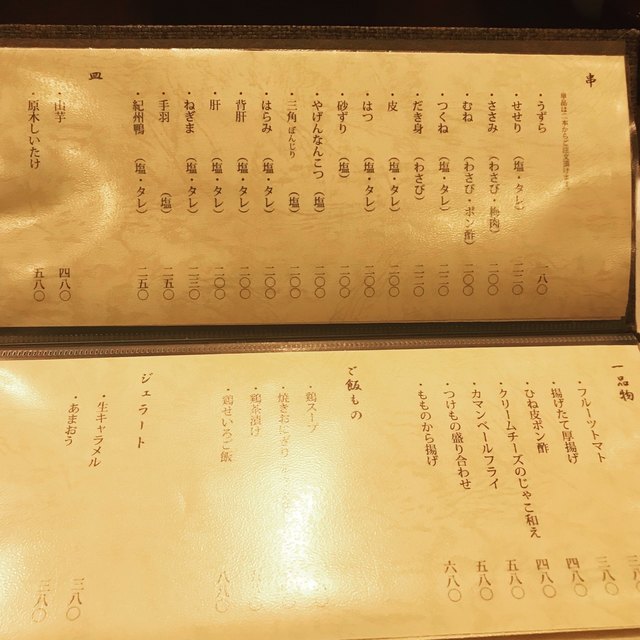 串
単品は二本からご注文頂けます。
・うずら 一八〇
・せせり (塩・タレ) 二二〇
・ささみ (わさび・梅肉) 二〇〇
・むね (わさび・ポン酢) 二〇〇
・つくね (塩・タレ) 二二〇
・だき身 (わさび) 二二〇
・皮 (塩・タレ) 二〇〇
・はつ (塩・タレ) 二〇〇
・砂ずり (塩) 二〇〇
・やげんなんこつ (塩) 二〇〇
・三角ぼんじり (塩) 二〇〇
・はらみ (塩・タレ) 二〇〇
・背肝 (塩・タレ) 二〇〇
・肝 (塩・タレ) 二〇〇
・ねぎま (塩・タレ) 二三〇
・手羽 (塩) 二五〇
・紀州鴨 (塩・タレ) 二五〇
皿
・山芋 四八〇
・原木しいたけ 五八〇
一品物
・フルーツトマト 三八
・揚げたて厚揚げ 三八〇
・ひね皮ポン酢 四八〇
・クリームチーズのじゃこ和え 四八〇
・カマンベールフライ 五八〇
・つけもの盛り合わせ 五八〇
・もものから揚げ 六八〇
ご飯もの
・鶏スープ
・焼きおにぎり
・鶏茶漬け
・鶏せいろご飯 八八〇
ジェラート
・生キャラメル 三八〇
・あまおう 三八〇